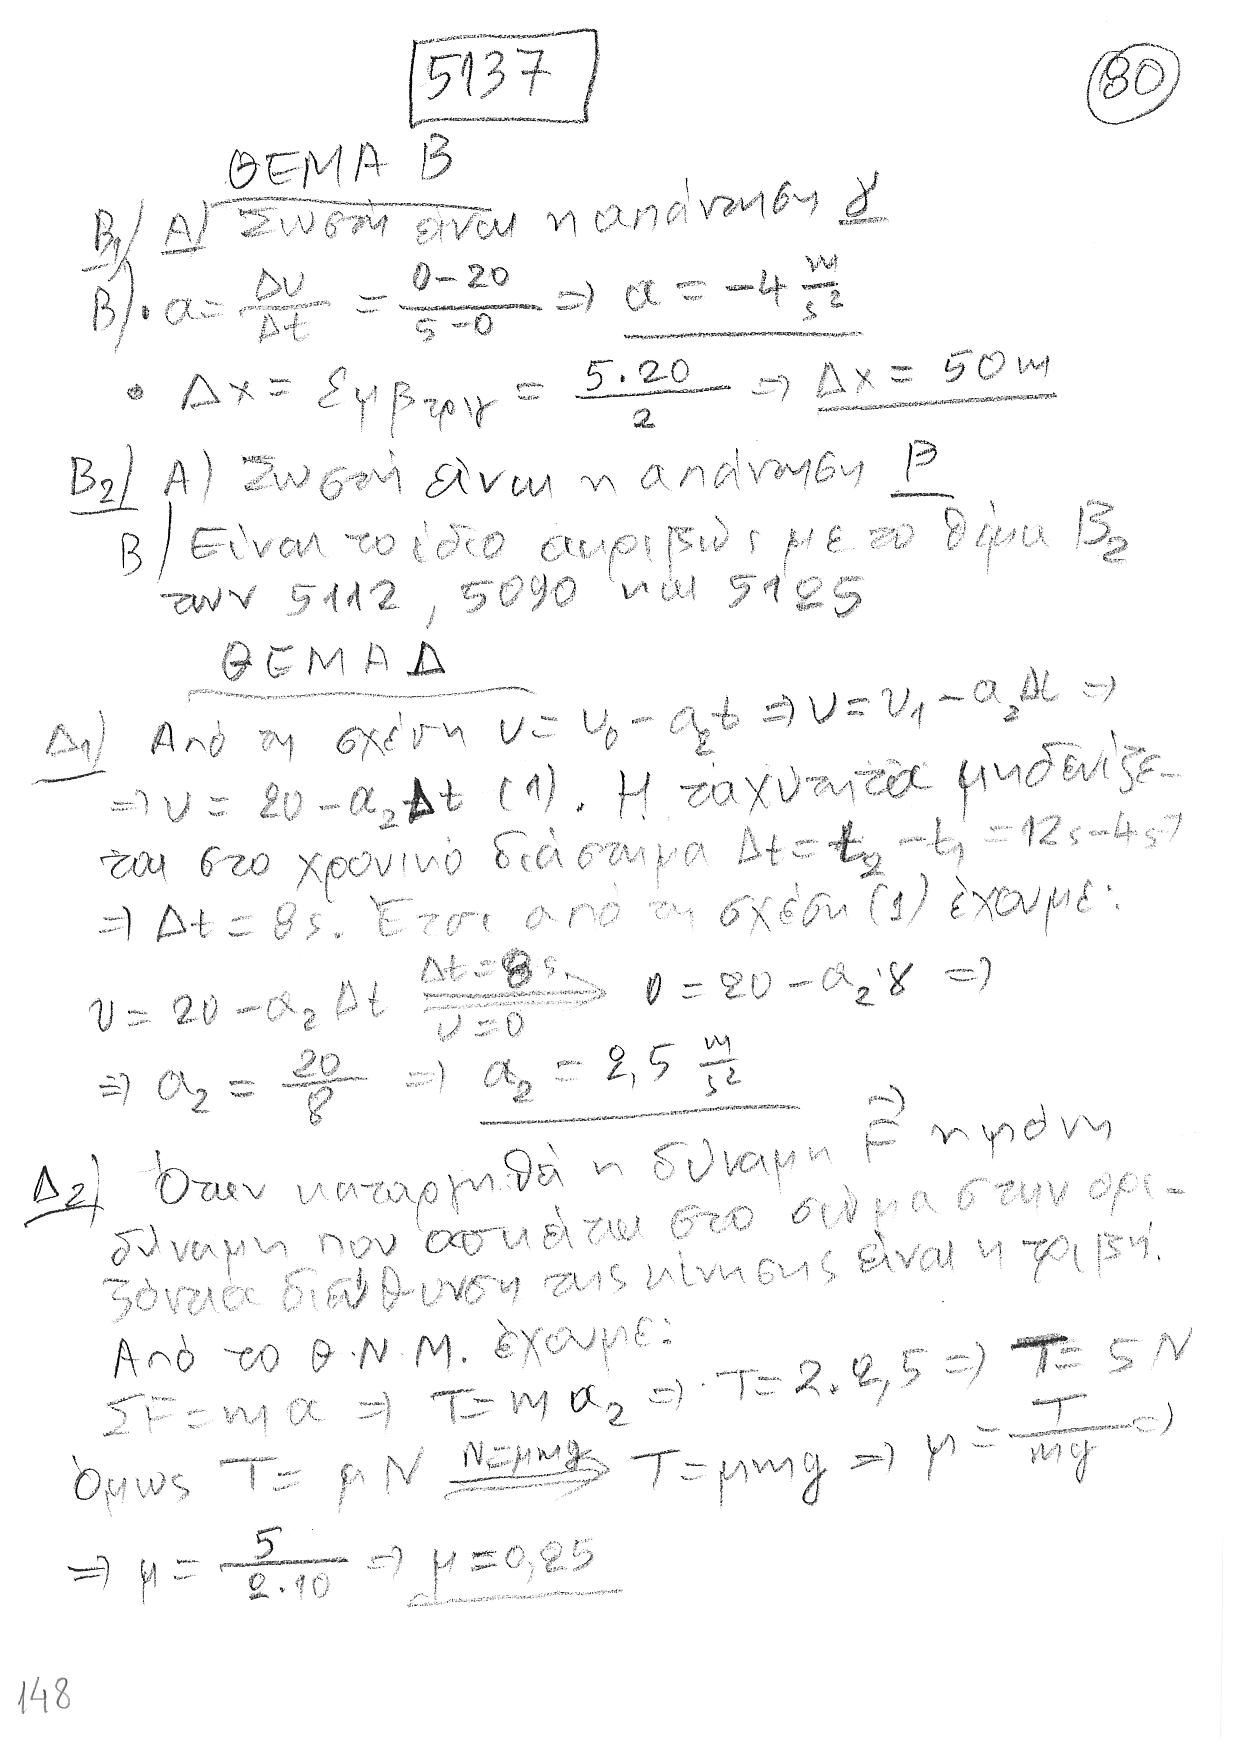 5137
80
ΘΕΜΑ Β
Β1/ Α/ Σωστή είναι η απάντηση γ
Β/ • α = Δυ/Δt = (0-20)/(5-0) ⇒ α = -4 m/s²
• Δx = Εμβτριγ = (5·20)/2 ⇒ Δx = 50m
Β2/ Α) Σωστή είναι η απάντηση β
Β/ Είναι το ίδιο ακριβώς με το θέμα Β2
των 5112, 5090 και 5125
ΘΕΜΑ Δ
Δ1) Από τη σχέση υ = υ0 - α2t ⇒ υ = υ1 - α2Δt ⇒
⇒ υ = 20 - α2Δt (1). Η ταχύτητα μηδενίζε-
ται στο χρονικό διάστημα Δt = t2 - t1 = 12s - 4s ⇒
⇒ Δt = 8s. Έτσι από τη σχέση (1) έχουμε:
υ = 20 - α2Δt (Δt = 8s, υ = 0) ⇒ 0 = 20 - α2·8 ⇒
⇒ α2 = 20/8 ⇒ α2 = 2,5 m/s²
Δ2) Όταν καταργηθεί η δύναμη F⃗ η μόνη
δύναμη που ασκείται στο σώμα στην ορι-
ζόντια διεύθυνση της κίνησης είναι η τριβή.
Από το Θ.Ν.Μ. έχουμε:
ΣF = mα ⇒ T = mα2 ⇒ T = 2·2,5 ⇒ T = 5N
Όμως T = μN (N=μmg) ⇒ T = μmg ⇒ μ = T/mg ⇒
⇒ μ = 5/(2·10) ⇒ μ = 0,25
148